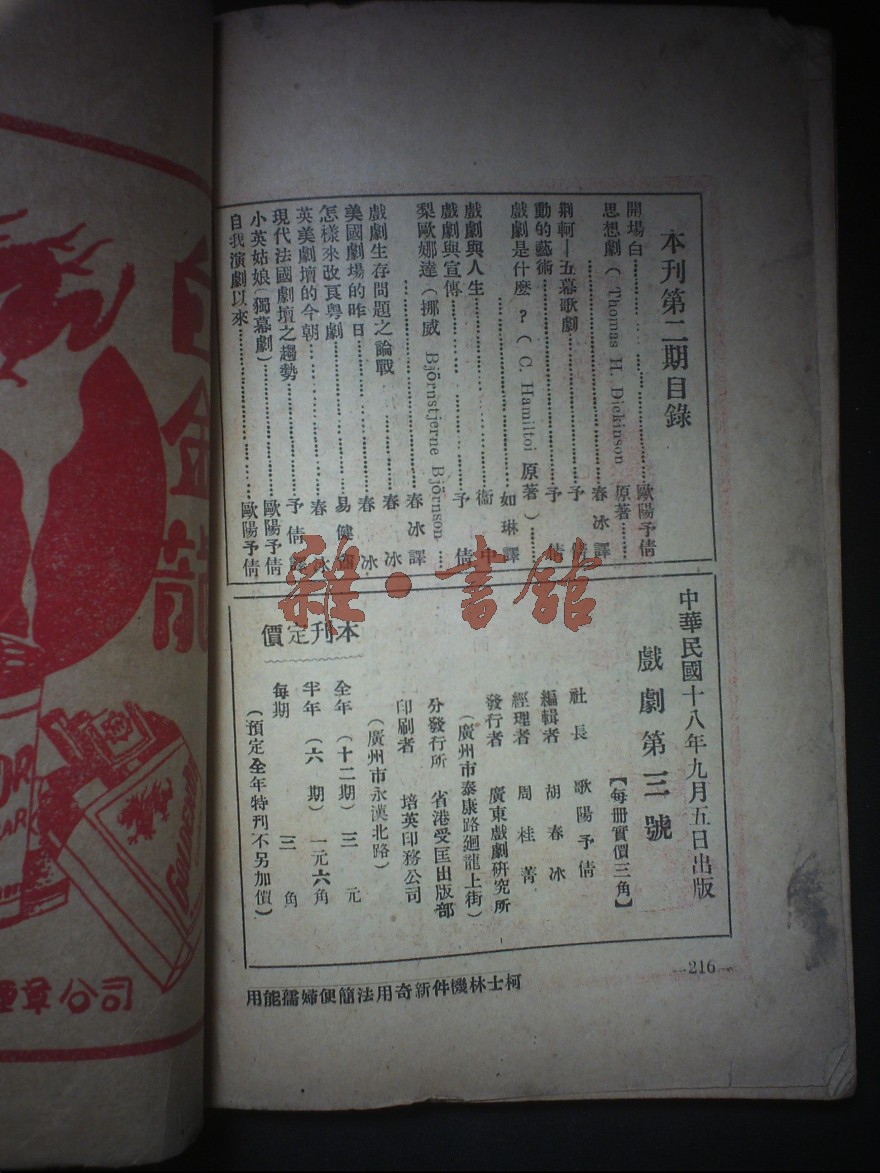 本刊第二期目錄
開場白……………………歐陽予倩
思想劇（Thomas H. Dickinson 原著……
……………………春冰譯
荆軻—五幕歌劇……………………予倩
動的藝術……………………予倩
戲劇是什麼？（C. Hamiltoi 原著）……
……………………如琳譯
戲劇與人生……………………衞中
戲劇與宣傳……………………予倩
梨歐娜達（挪威 Björnstjerne Björnson ……
……………………春冰譯
戲劇生存問題之論戰……………………春冰
美國劇場的昨日……………………春冰
怎樣來改良粤劇……………………易健盦
英美劇壇的今朝……………………春冰
現代法國劇壇之趨勢……………………予倩譯
小英姑娘（獨幕劇）……………………歐陽予倩
自我演劇以來……………………歐陽予倩
中華民國十八年九月五日出版
戲劇第三號
【每冊實價三角】
社長 歌陽予倩
編輯者 胡春冰
經理者 周桂菁
發行者 廣東戲劇研究所
（廣州市泰康路廻龍上街）
分發行所 省港受匡出版部
印刷者 培英印務公司
（廣州市永漢北路）
本刊定價
全年（十二期）三元
半年（六期）一元六角
每期 三角
（預定全年特刊不另加價）
—216—
柯士林機件新奇用法簡便婦孺能用
雜·書舘
白金龍
GOLDEN
煙草公司